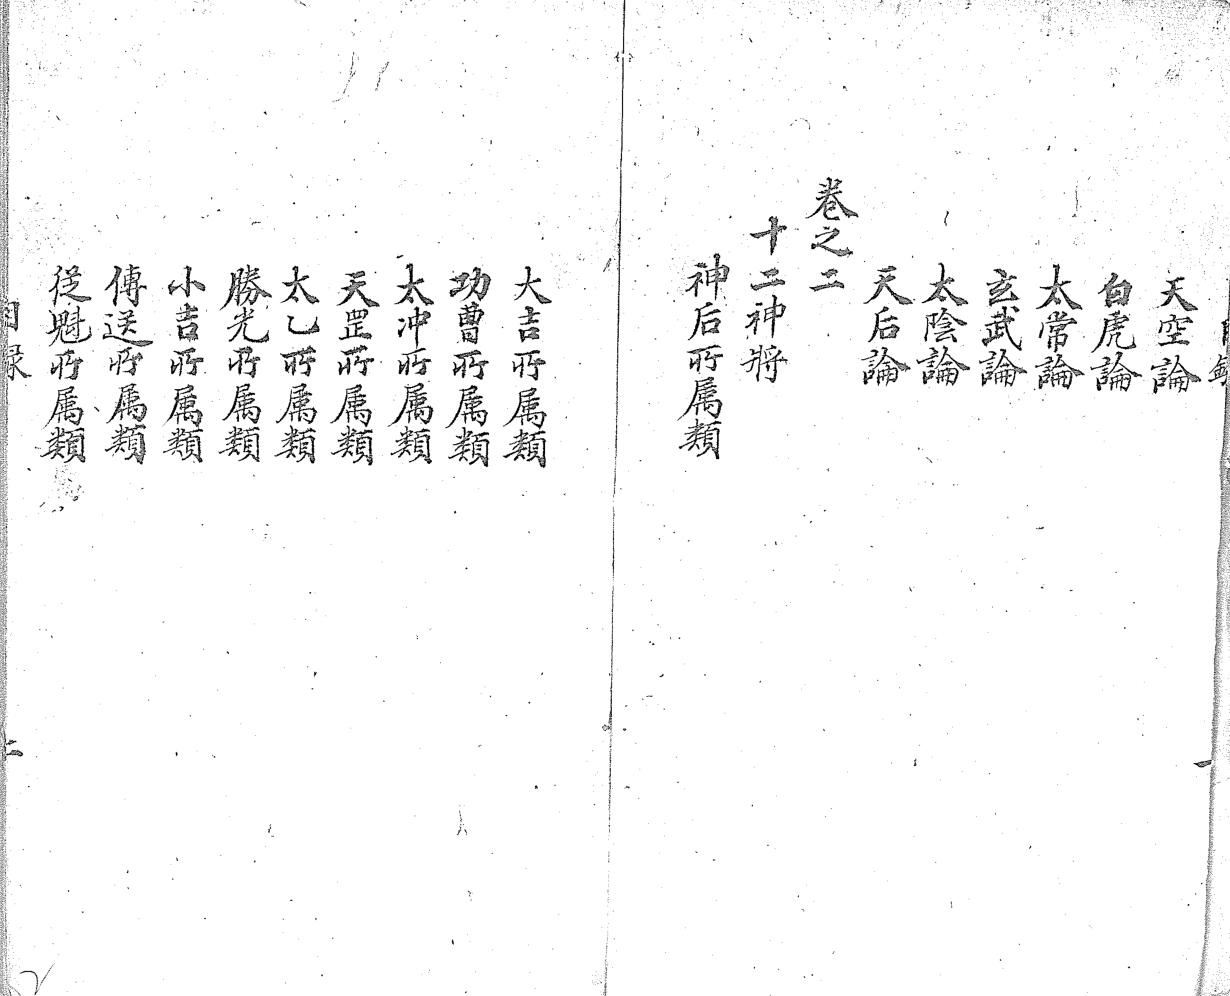 天空論
白虎論
太常論
玄武論
太陰論
天后論
卷之二
十二神將
神后所属類
大吉所属類
功曹所属類
太冲所属類
天罡所属類
太乙所属類
勝光所属類
小吉所属類
傳送所属類
從魁所属類
目録
二